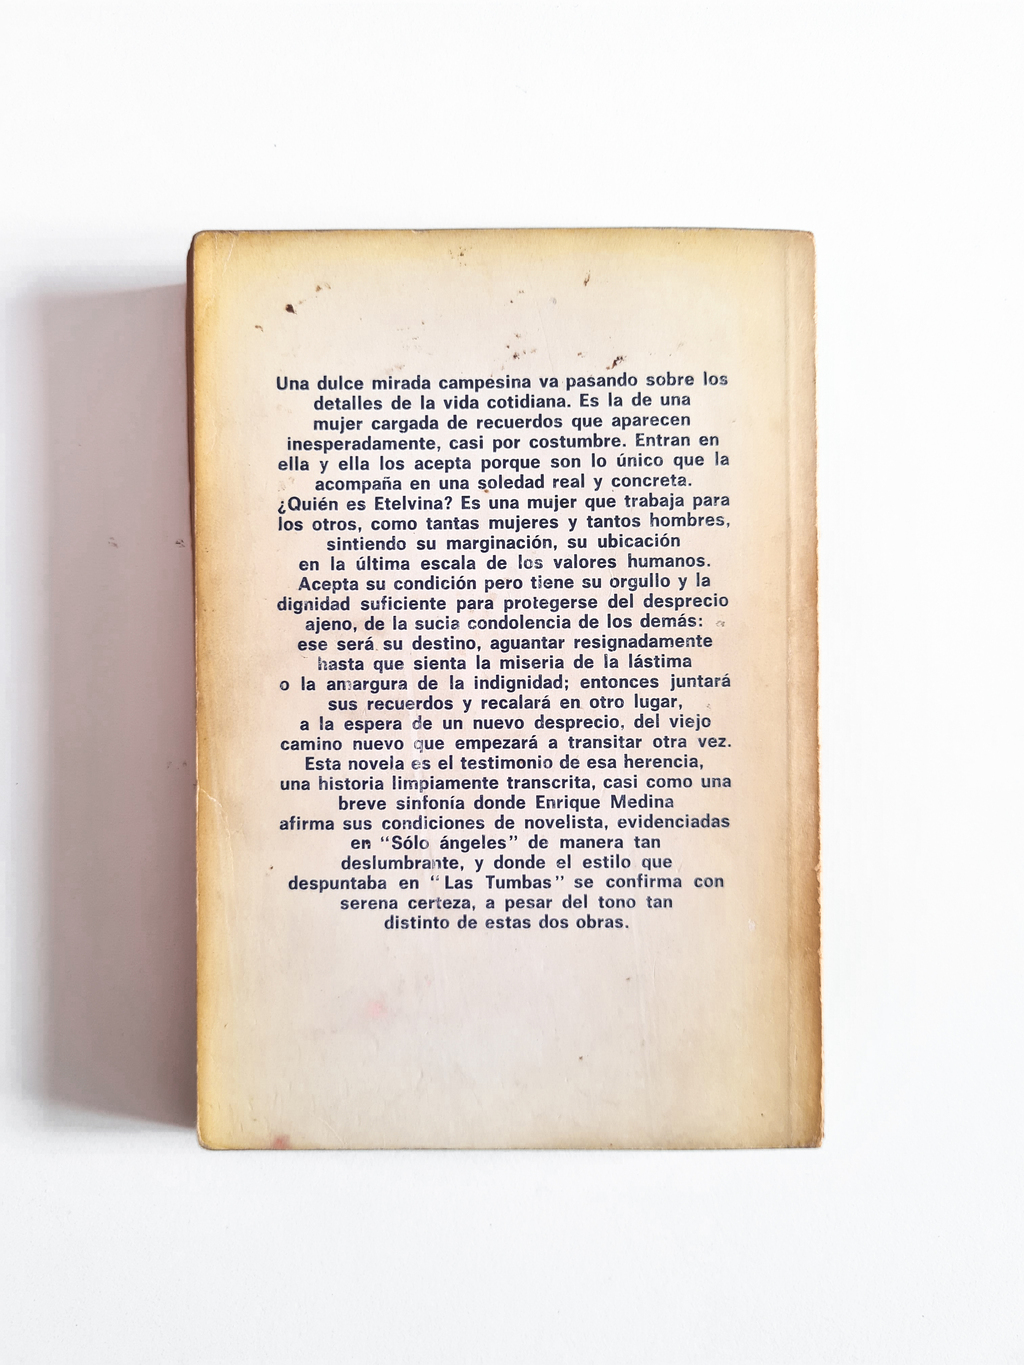 Una dulce mirada campesina va pasando sobre los
detalles de la vida cotidiana. Es la de una
mujer cargada de recuerdos que aparecen
inesperadamente, casi por costumbre. Entran en
ella y ella los acepta porque son lo único que la
acompaña en una soledad real y concreta.
¿Quién es Etelvina? Es una mujer que trabaja para
los otros, como tantas mujeres y tantos hombres,
sintiendo su marginación, su ubicación
en la última escala de los valores humanos.
Acepta su condición pero tiene su orgullo y la
dignidad suficiente para protegerse del desprecio
ajeno, de la sucia condolencia de los demás:
ese será su destino, aguantar resignadamente
hasta que sienta la miseria de la lástima
o la amargura de la indignidad; entonces juntará
sus recuerdos y recalará en otro lugar,
a la espera de un nuevo desprecio, del viejo
camino nuevo que empezará a transitar otra vez.
Esta novela es el testimonio de esa herencia,
una historia limpiamente transcrita, casi como una
breve sinfonía donde Enrique Medina
afirma sus condiciones de novelista, evidenciadas
en “Sólo ángeles” de manera tan
deslumbrante, y donde el estilo que
despuntaba en “Las Tumbas” se confirma con
serena certeza, a pesar del tono tan
distinto de estas dos obras.